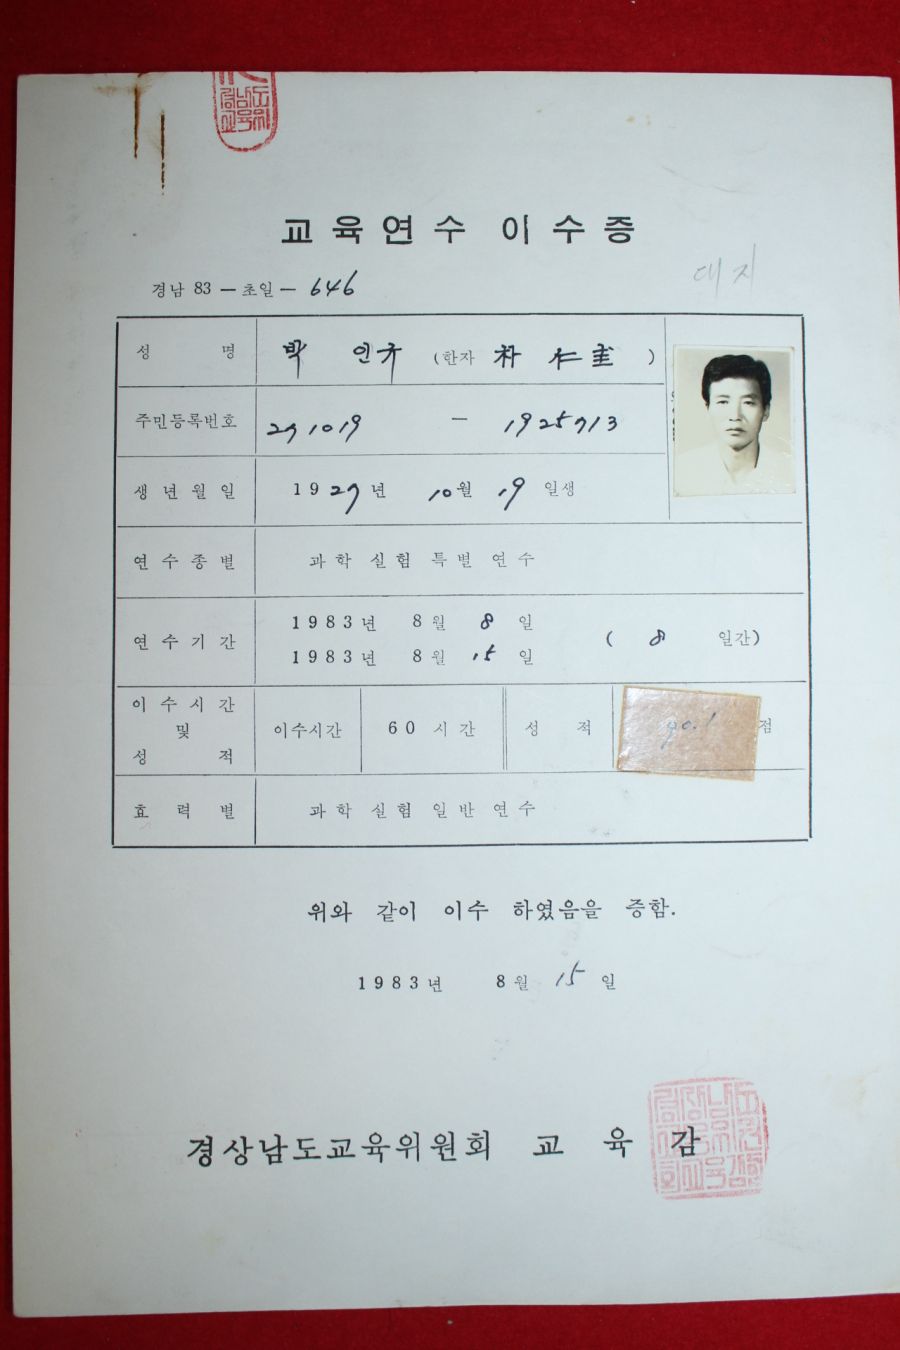 교육연수 이수증
경남 83 — 초일 — 646
대지
성 명 박 인규 (한자 朴 仁圭 )
주민등록번호 271019 — 1925713
생년월일 1927년 10월 19일생
연수종별 과학 실험 특별 연수
연수기간 1983년 8월 8일
1983년 8월 15일
( 8 일간)
이수시간 및 성적 이수시간 60 시간 성 적 90.1 점
효력별 과학 실험 일반 연수
위와 같이 이수 하였음을 증함.
1983년 8월 15일
경상남도교육위원회 교 육 감